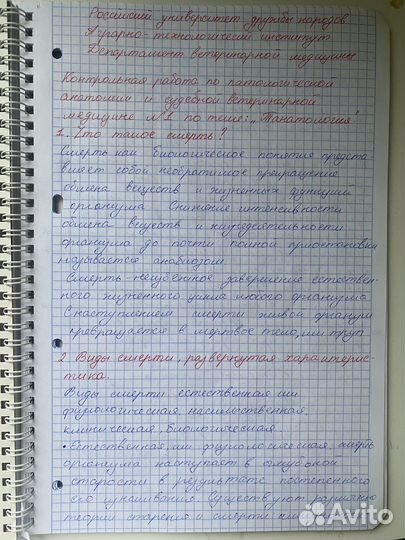 Российский университет дружбы народов
Аграрно-технологический институт
Департамент ветеринарной медицины
Контрольная работа по патологической
анатомии и судебной ветеринарной
медицине №1 по теме: „Танатология"
1. Что такое смерть?
Смерть как биологическое понятие предста
вляет собой необратимое прекращение
обмена веществ и жизненных функций
организма Снижение интенсивности
обмена веществ и жизнедеятельности
организма до почти полной приостановки
называется анабиозом
Смерть-неизбежное завершение естествен-
ного жизненного цикла любого организма
С наступлением смерти живой организм
превращается в мертвое тело, или труп
2. Виды смерти, развернутая характерис-
тика.
Виды смерти: естественная или
физиологическая, насильственная,
клиническая, биологическая.
• Естественная, или физиологическая, смерть
организма наступает в глубокой
старости в результате постепенного
его изнашивания Существуют различные
теории старения и смерти
Avito